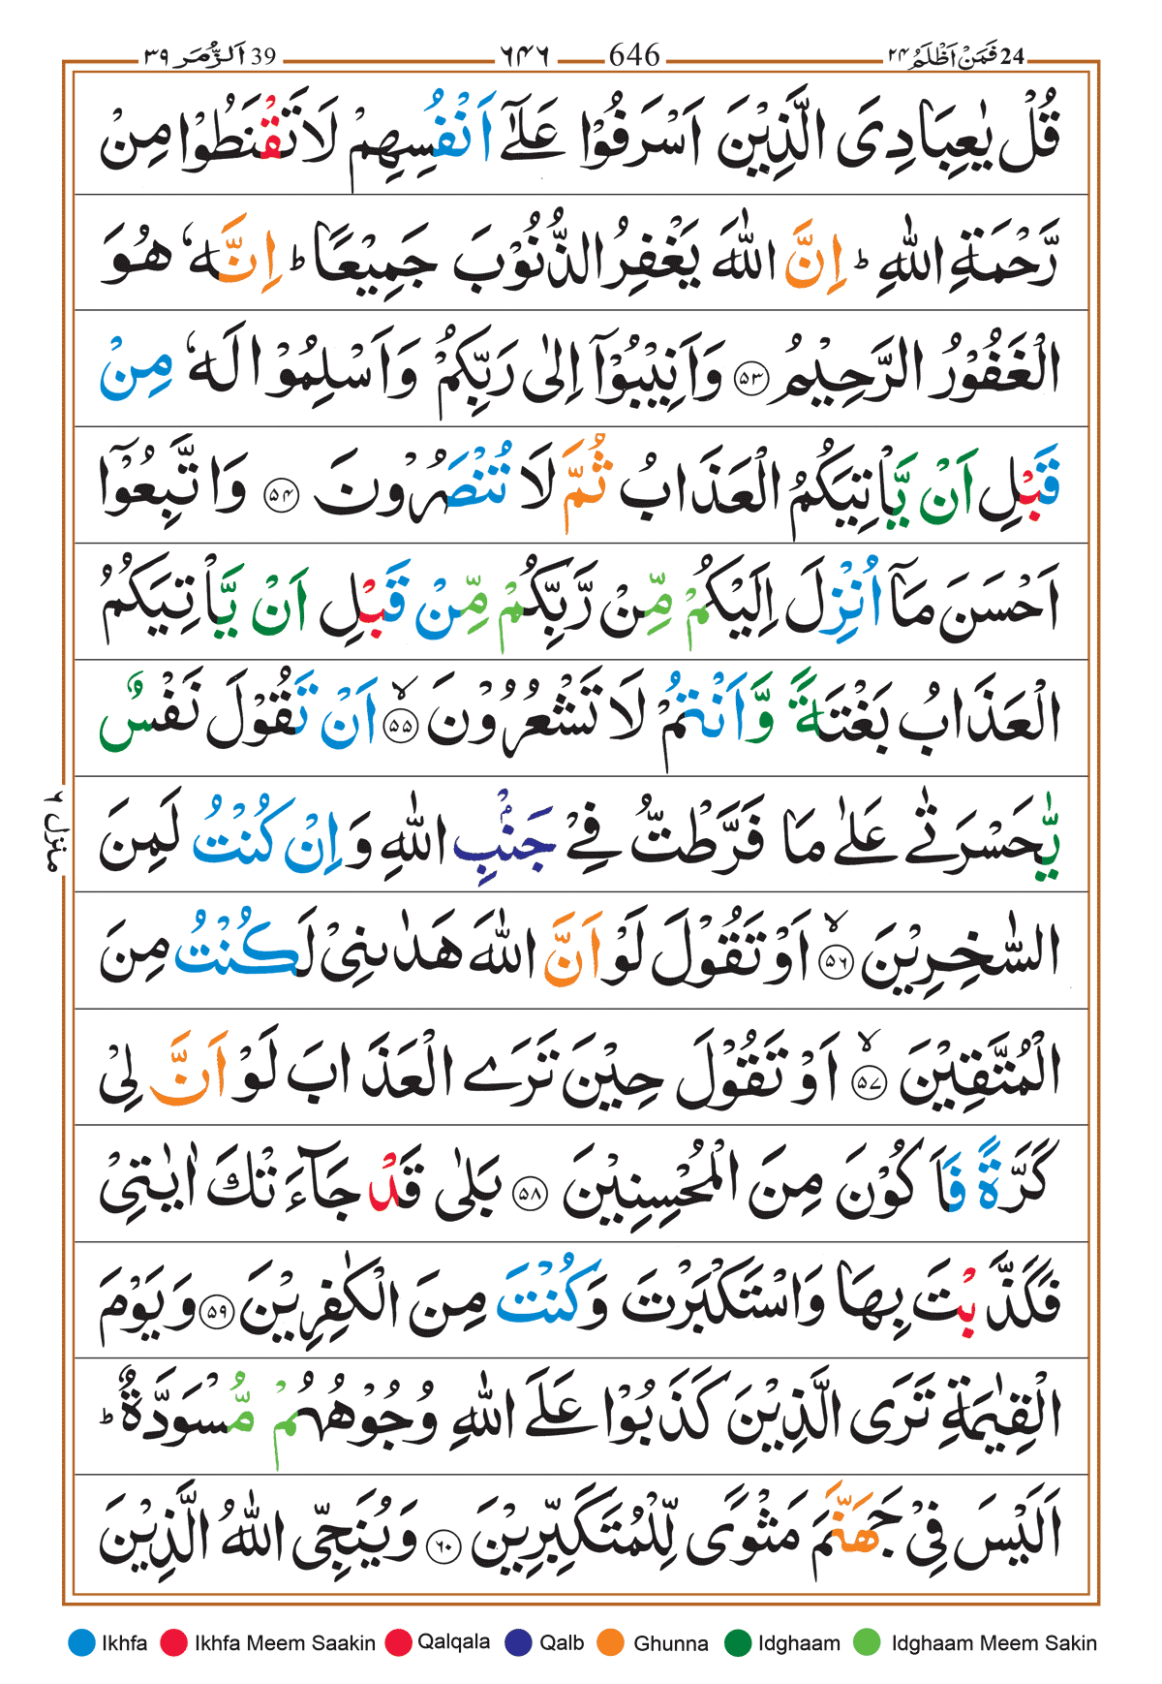 39 اَلزُّمَر ٣٩ ٦٤٦ 646 24 فَمَنْ اَظْلَمُ ٢٤
قُلْ يٰعِبَادِىَ الَّذِيْنَ اَسْرَفُوْا عَلٰٓى اَنْفُسِهِمْ لَا تَقْنَطُوْا مِنْ
رَّحْمَةِ اللّٰهِ ؕ اِنَّ اللّٰهَ يَغْفِرُ الذُّنُوْبَ جَمِيْعًا ؕ اِنَّهٗ هُوَ
الْغَفُوْرُ الرَّحِيْمُ ۝۵۳ وَاَنِيْبُوْۤا اِلٰى رَبِّكُمْ وَاَسْلِمُوْا لَهٗ مِنْ
قَبْلِ اَنْ يَّاْتِيَكُمُ الْعَذَابُ ثُمَّ لَا تُنْصَرُوْنَ ۝۵۴ وَاتَّبِعُوْۤا
اَحْسَنَ مَاۤ اُنْزِلَ اِلَيْكُمْ مِّنْ رَّبِّكُمْ مِّنْ قَبْلِ اَنْ يَّاْتِيَكُمُ
الْعَذَابُ بَغْتَةً وَّاَنْتُمْ لَا تَشْعُرُوْنَ ۙ۝۵۵ اَنْ تَقُوْلَ نَفْسٌ
يّٰحَسْرَتٰى عَلٰى مَا فَرَّطْتُّ فِيْ جَنْۢبِ اللّٰهِ وَاِنْ كُنْتُ لَمِنَ
السّٰخِرِيْنَ ۙ۝۵۶ اَوْ تَقُوْلَ لَوْ اَنَّ اللّٰهَ هَدٰىنِيْ لَكُنْتُ مِنَ
الْمُتَّقِيْنَ ۙ۝۵۷ اَوْ تَقُوْلَ حِيْنَ تَرَى الْعَذَابَ لَوْ اَنَّ لِيْ
كَرَّةً فَاَكُوْنَ مِنَ الْمُحْسِنِيْنَ ۝۵۸ بَلٰى قَدْ جَآءَتْكَ اٰيٰتِيْ
فَكَذَّبْتَ بِهَا وَاسْتَكْبَرْتَ وَكُنْتَ مِنَ الْكٰفِرِيْنَ ۝۵۹ وَيَوْمَ
الْقِيٰمَةِ تَرَى الَّذِيْنَ كَذَبُوْا عَلَى اللّٰهِ وُجُوْهُهُمْ مُّسْوَدَّةٌ ؕ
اَلَيْسَ فِيْ جَهَنَّمَ مَثْوًى لِّلْمُتَكَبِّرِيْنَ ۝۶۰ وَيُنَجِّى اللّٰهُ الَّذِيْنَ
منزل ٦
Ikhfa Ikhfa Meem Saakin Qalqala Qalb Ghunna Idghaam Idghaam Meem Sakin